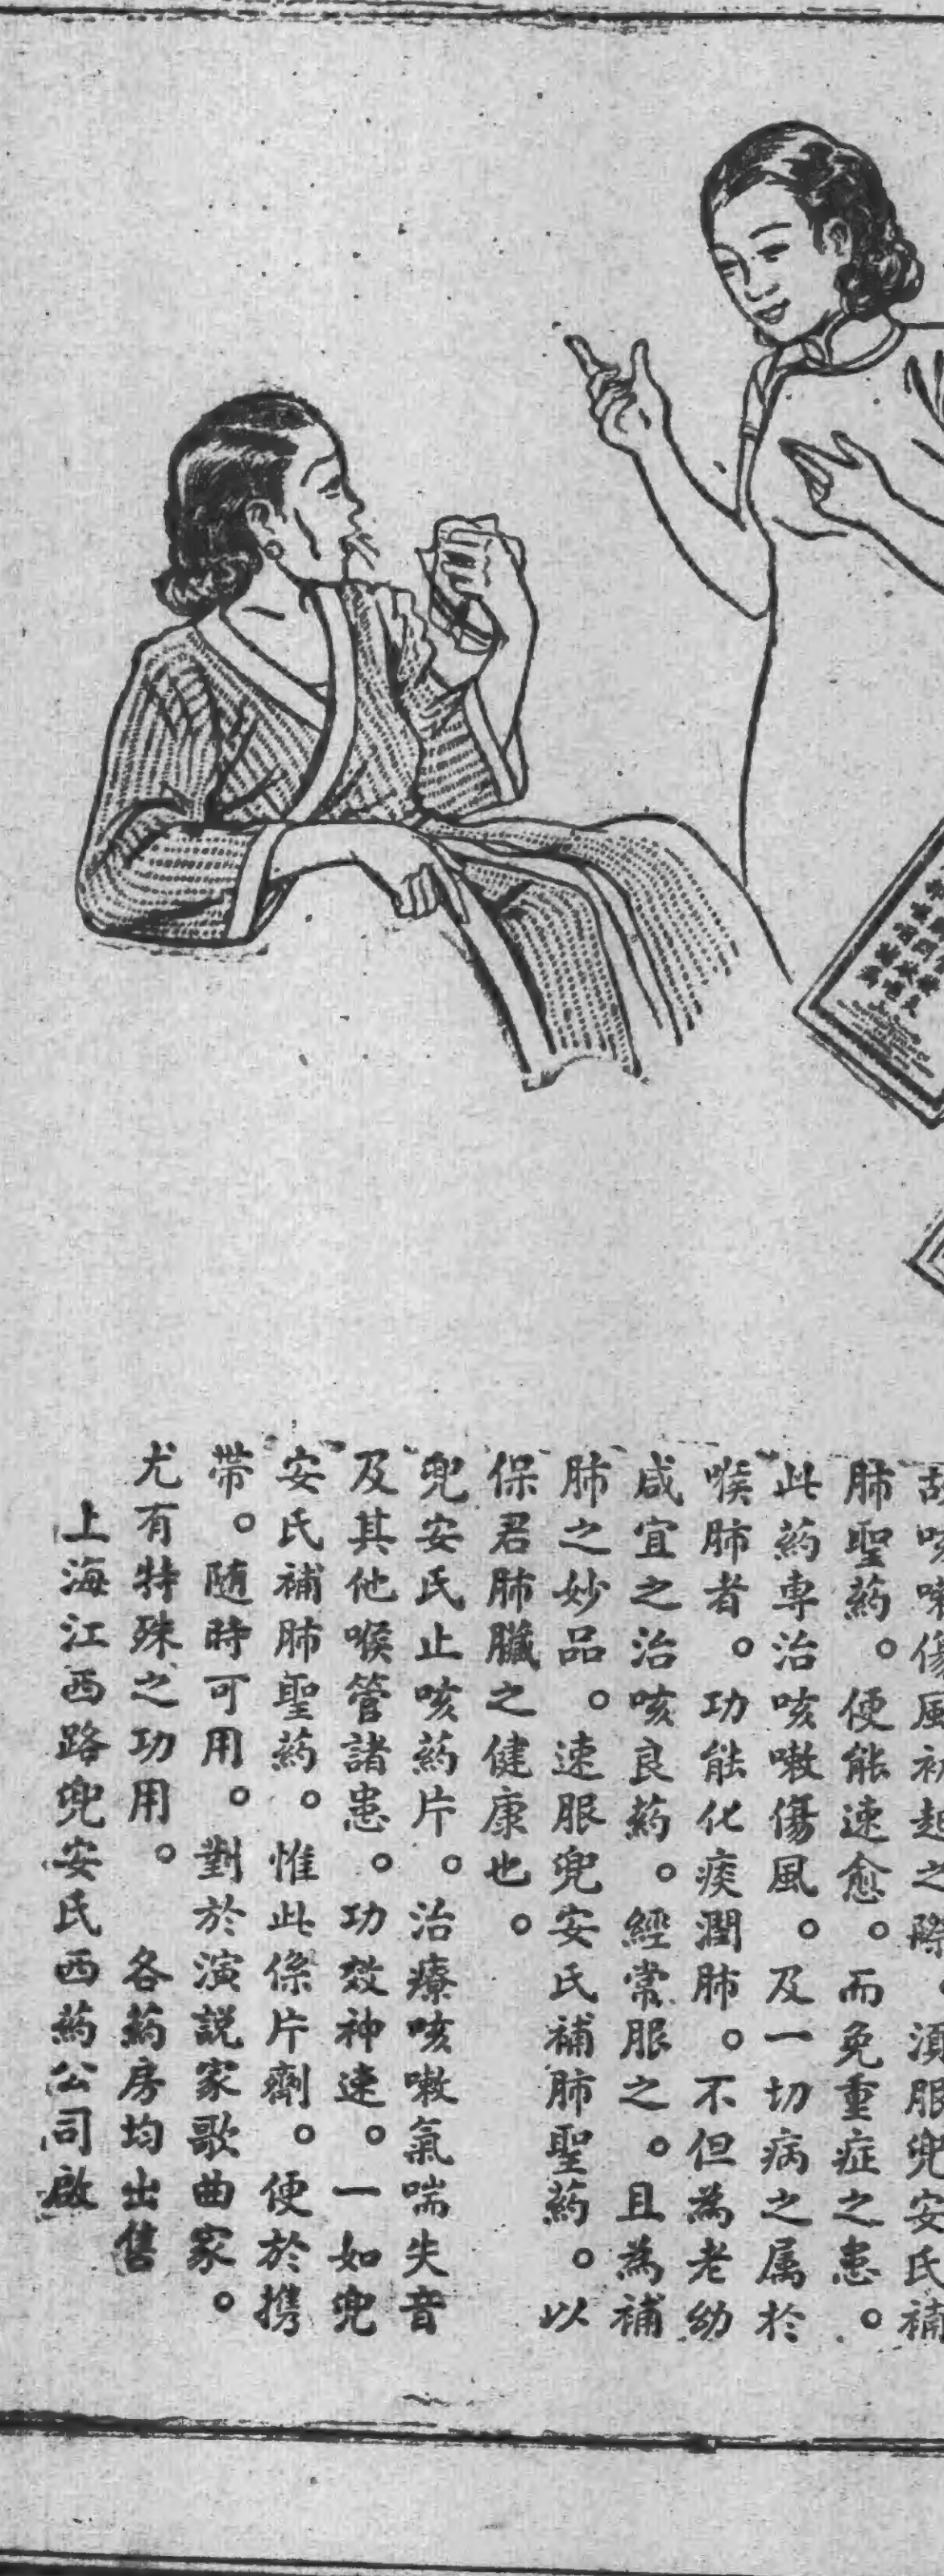 故咳嗽傷風初起之際。須服兜安氏補
肺聖藥。便能速愈。而免重症之患。
此藥專治咳嗽傷風。及一切病之属於
喉肺者。功能化痰潤肺。不但為老幼
咸宜之治咳良藥。經常服之。且為補
肺之妙品。速服兜安氏補肺聖藥。以
保君肺臟之健康也。
兜安氏止咳藥片。治療咳嗽氣喘失音
及其他喉管諸患。功效神速。一如兜
安氏補肺聖藥。惟此係片劑。便於携
帶。随時可用。對於演説家歌曲家。
尤有特殊之功用。 各藥房均出售
上海江西路兜安氏西藥公司啟